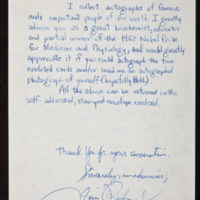 I collect autographs of famous
and important people of the world. I greatly
admire you as a great biochemist, educator
and partial winner of the 1962 Nobel Prize
for Medicine and Physiology, and would greatly
appreciate it if you could autograph the two
enclosed cards and/or send me an autographed
photograph of yourself (hopefully both).
All the above can be returned in the
self-addressed, stamped envelope enclosed.
Thank You for your cooperation.
Sincerely, in admiration,